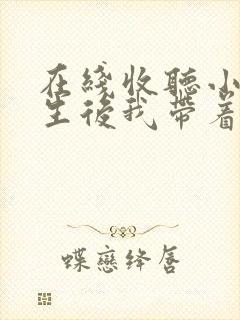 在綫收聽小
生後我帶着
蝶戀绛唇